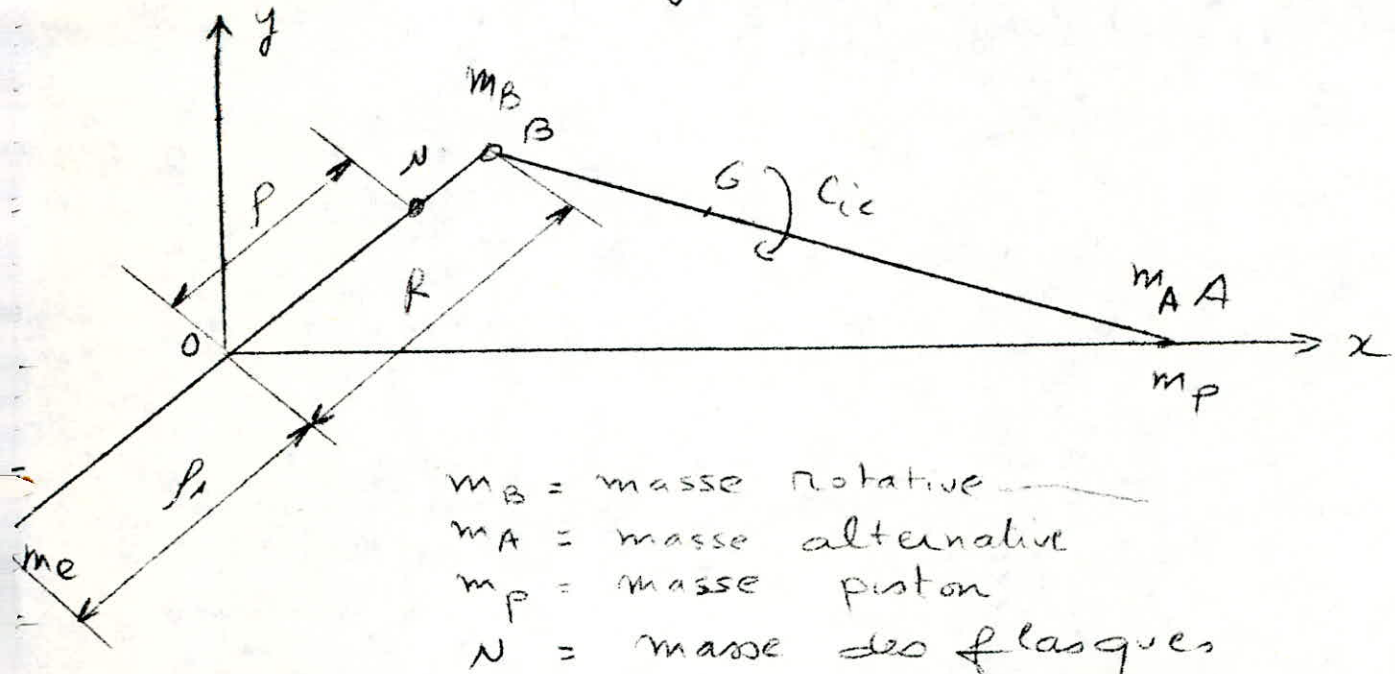 y
m_B
B
N
G
C_ic
ρ
R
m_A A
O
x
m_p
ρ_1
m_e
m_B = masse rotative
m_A = masse alternative
m_p = masse piston
N = masse des flasques